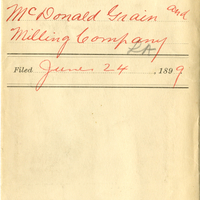 McDonald Grain and
Milling Company
RA
Filed June 24, 1899